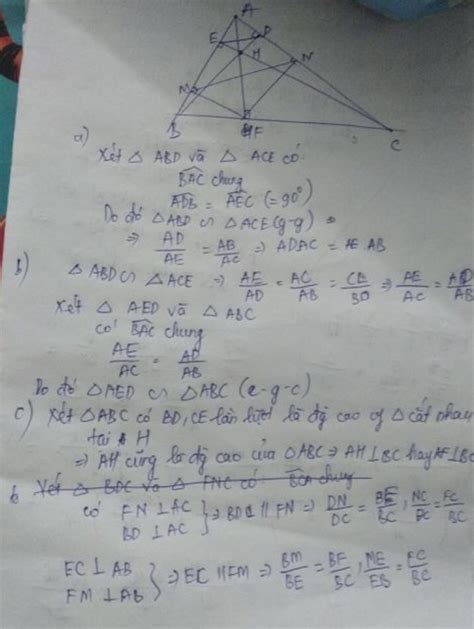 A
E
D
H
N
M
B
F
C
a)
Xét △ ABD và △ ACE có
BAC chung
ADB = AEC (= 90°)
Do đó △ABD ∽ △ACE (g-g)
⇒ AD/AE = AB/AC ⇒ AD.AC = AE.AB
b)
△ABD ∽ △ACE ⇒ AE/AD = AC/AB = CE/BD ⇒ AE/AC = AD/AB
Xét △ AED và △ ABC
có BAC chung
AE/AC = AD/AB
Do đó △AED ∽ △ABC (c-g-c)
c) Xét △ABC có BD, CE lần lượt là đg cao of △ cắt nhau
tại H
⇒ AH cũng là đg cao của △ABC ⇒ AH ⊥ BC hay AF ⊥ BC
Xét △ BDC và △ FNC có BCA chung
có FN ⊥ AC
BD ⊥ AC } ⇒ BD // FN ⇒ DN/DC = BF/BC, NC/DC = FC/BC
EC ⊥ AB
FM ⊥ AB } ⇒ EC // FM ⇒ BM/BE = BF/BC, ME/EB = FC/BC